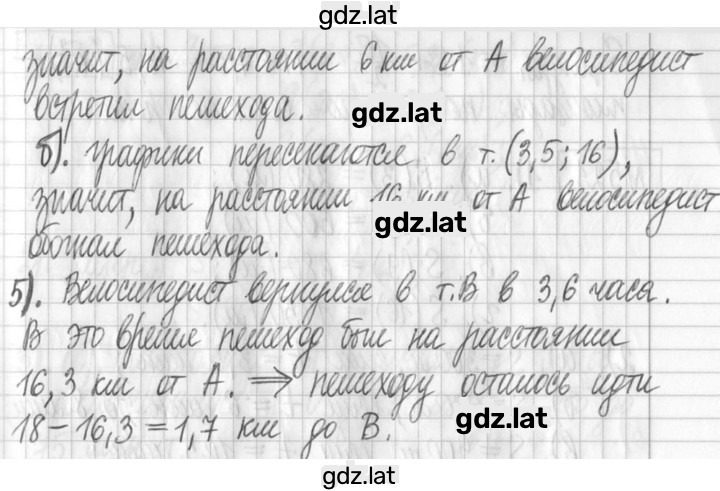 gdz.lat
значит, на расстоянии 6 км от А велосипедист
встретил пешехода.
gdz.lat
б). графики пересекаются в т. (3,5; 16),
значит, на расстоянии 16 км от А велосипедист
gdz.lat
обогнал пешехода.
5). Велосипедист вернулся в т. В в 3,6 часа.
В это время пешеход был на расстоянии
16,3 км от А. ⇒ пешеходу осталось идти
18 – 16,3 = 1,7 км до В.
gdz.lat
gdz.lat